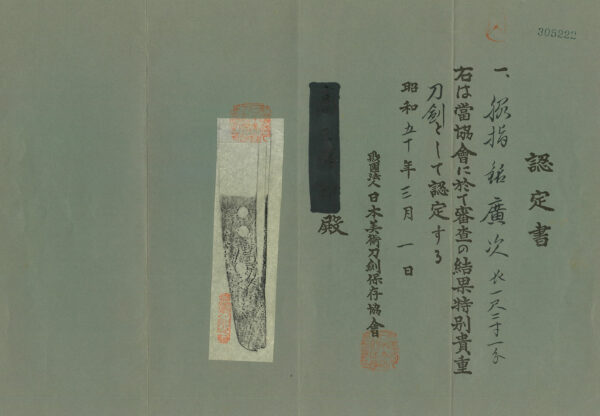 305222
認定書
一、脇指 銘 廣次 長一尺二寸一分
右は當協會に於て審査の結果特別貴重
刀劍として認定する
昭和五十年三月一日
財團法人日本美術刀劍保存協會
殿